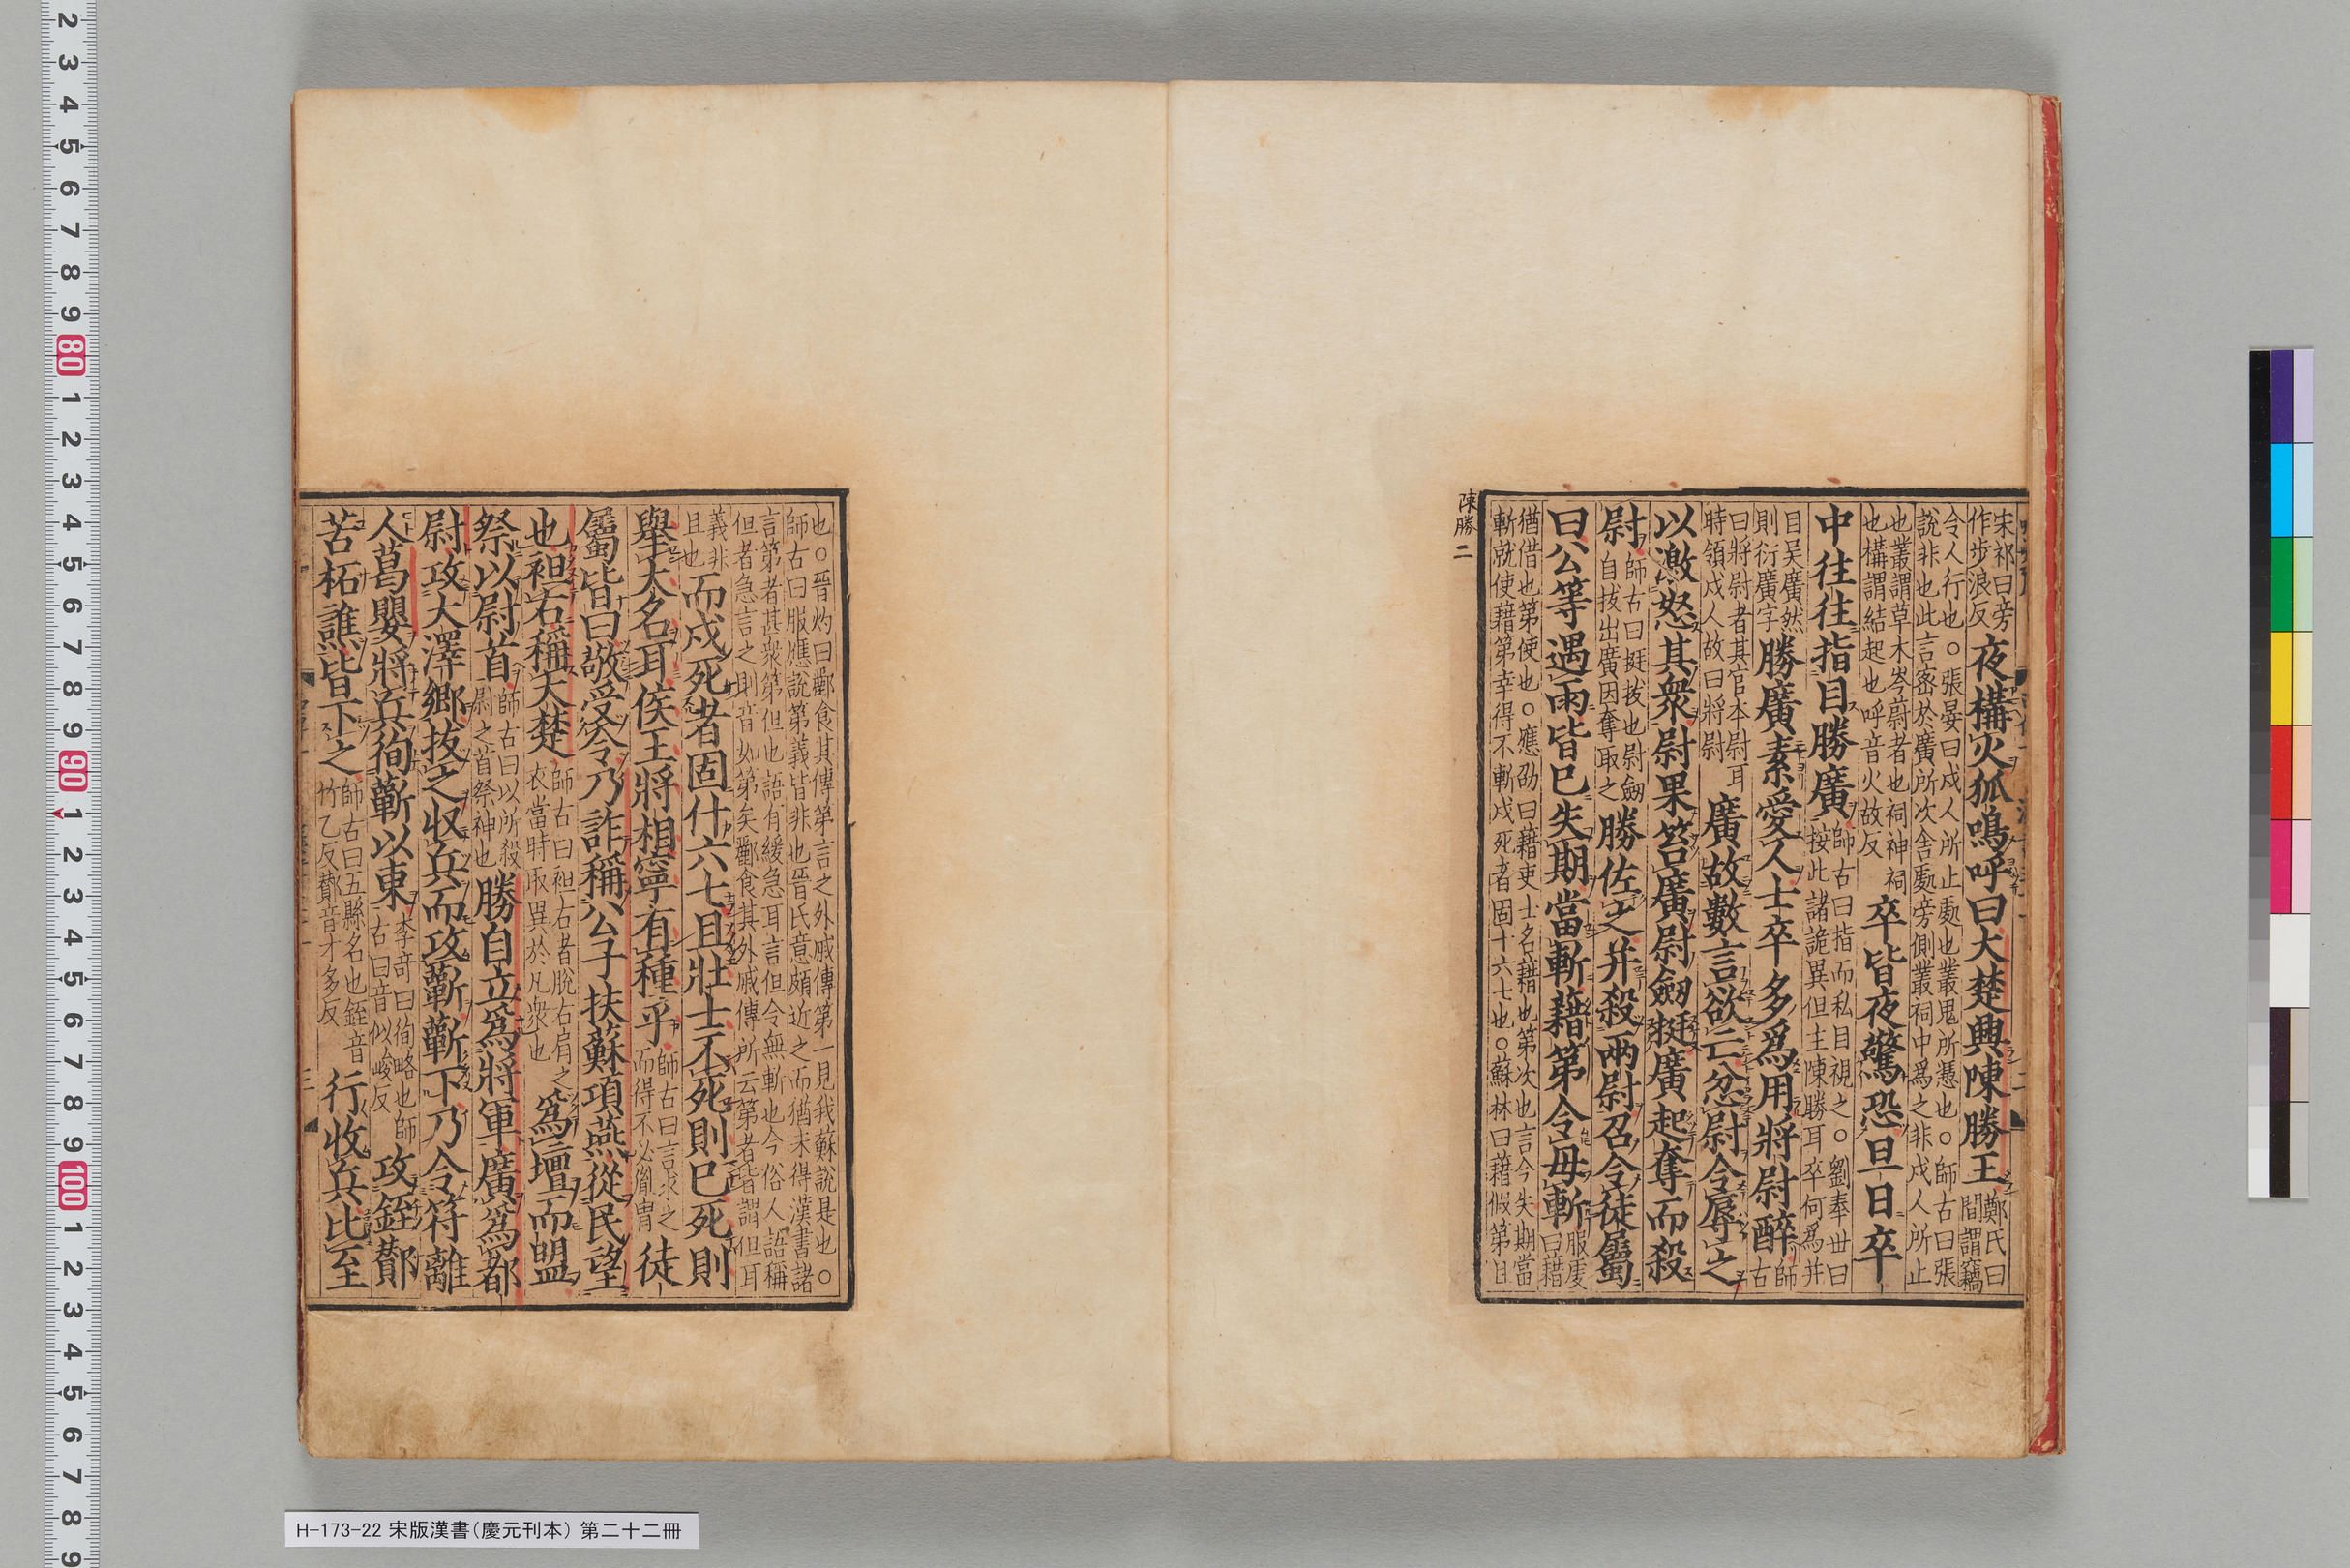 宋祁曰旁
作步浪反
夜構火狐鳴呼曰大楚興陳勝王
鄭氏曰
間謂竊
令人行也○張晏曰戍人所止處也叢鬼所慿也○師古曰張
說非也此言密於廣所次舍處旁側叢祠中爲之非戍人所止
也叢謂草木岑蔚者也祠神祠
也構謂結起也呼音火故反
卒皆夜驚恐旦日卒
中往往指目勝廣
師古曰指而私目視之○劉奉世曰
按此諸詭異但主陳勝耳卒何爲并
目吴廣然
則衍廣字
勝廣素愛人士卒多爲用將尉醉
師
古
曰將尉者其官本尉耳
時領戍人故曰將尉
廣故數言欲亡忿尉令辱之
以激怒其衆尉果笞廣尉劔挺廣起奪而殺
尉
師古曰挺拔也尉劔
自拔出廣因奪取之
勝佐之并殺兩尉召令徒屬
曰公等遇雨皆已失期當斬藉第令毋斬
服虔
曰藉
猶借也第使也○應劭曰藉吏士名藉也第次也言今失期當
斬就使藉第幸得不斬戍死者固十六七也○蘇林曰藉假第且
陳勝二
也○晉灼曰酈食其傳第言之外戚傳第一見我蘇說是也○
師古曰服應說第義皆非也晉氏意頗近之而猶未得漢書諸
言第者甚衆第但也語有緩急耳言但令無斬也今俗人語稱
但者急言之則音如第矣酈食其外戚傳所云第者皆謂但耳
義非
且也
而戍死者固什六七且壯士不死則已死則
舉大名耳侯王將相寧有種乎
師古曰言求之
而得不必胤胄
徒
屬皆曰敬受令乃詐稱公子扶蘇項燕從民望
也袒右稱大楚
師古曰袒右者脫右肩之
衣當時取異於凡衆也
爲壇而盟
祭以尉首
師古曰以所殺
尉之首祭神也
勝自立爲將軍廣爲都
尉攻大澤鄉拔之収兵而攻蘄蘄下乃令符離
人葛嬰將兵徇蘄以東
李奇曰徇略也師
古曰音似峻反
攻銍酇
苦柘譙皆下之
師古曰五縣名也銍音
竹乙反酇音才多反
行收兵比至
H-173-22 宋版漢書(慶元刊本) 第二十二冊